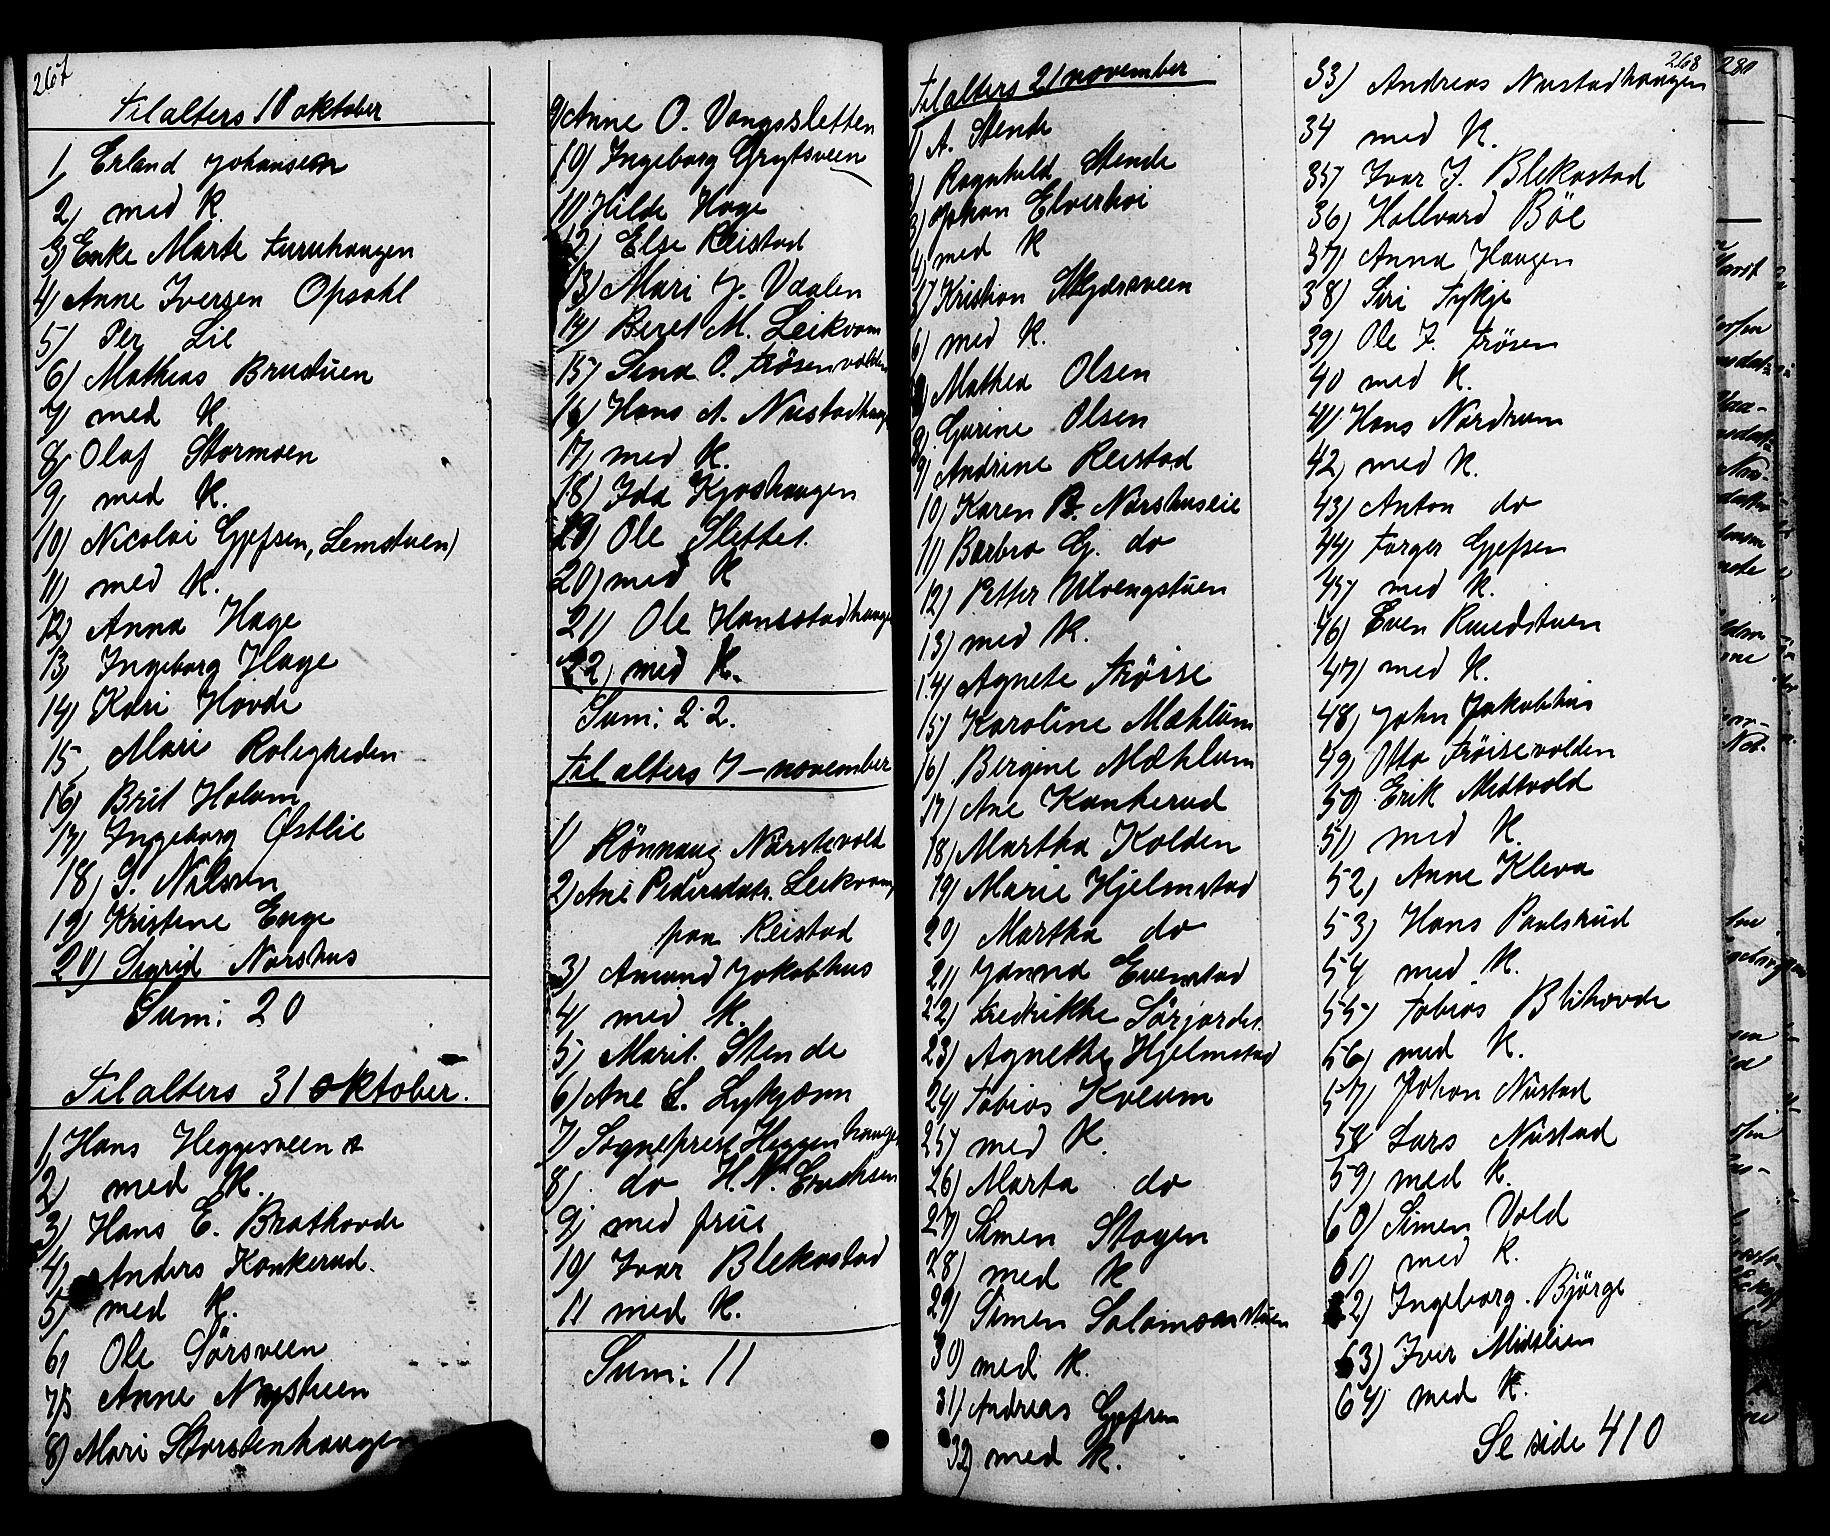 267
Til alters 10 oktober
1, Erland Johansen
2) med K.
3) Enke Marte Furuhaugen
4) Anne Iversen Opsahl
5) Per Lie
6) Mathias Bruduen
7) med K
8) Olaf Stormoen
9, med K.
10) Nicolai Gjefsen, Lemstuen)
11) med K.
12) Anna Hage
13) Ingeborg Hage
14) Kari Hovde
15, Mari Roligheden
16) Brit Holam
17) Ingeborg Østlie
18) S. Nilsen
19) Kristine Enge
20) Sigrid Norshus
Sum: 20
Til alters 31 oktober.
1, Hans Heggesveen
2) med K.
3) Hans E. Brathovde
4) Anders Konkerud.
5) med K.
6, Ole Sörsveen
7) Anne Nystuen
8) Mari Storstenhaugen
9) Anne O. Vangssletten
10) Ingeborg Grytsveen
11) Hilde Hage
12) Else Reistad
13) Mari J. Vaalen
14) Beret M. Leikvam
15) Lina O. Frösenvolden
16) Hans A. Nustadhaug
17, med K.
18) Ida Kjoshaugen
19) Ole Slettet.
20) med K
21) Ole Hanestadhauge
22, med K.
Sum: 22.
Til alters 7-november
1) Rönnaug Nörstevold
2) Ane Pedersdatr. Leikvam,
paa Reistad
3) Amund Jakobhus
4) med K.
5) Marit. Stende
6) Ane L. Lykjom
7) Sogneprest Heggenhauge
8) do H. N. Erichsen
9) med frue
10) Ivar Blekastad
11 med K.
Sum: 11
Til alters 21 november
1) A. Stende
2) Ragnhild Stende
3) Johan Elverhøi
4) med K
5) Kristian Skydsveen
6) med K.
7) Mathea Olsen
8) Gurine Olsen
9) Andrine Reistad
10) Karen B. Norshuseie
11) Barbro G. do
12) Petter Ulvengstuen
13) med K.
14) Agnete Fröise
15) Karoline Mæhlum
16) Bergine Mæhlum
17) Ane Kankerud
18) Martha Kolden
19) Marie Hjelmstad
20) Martha do
21) Janna Evenstad
22) Fredrikke Sörjordet.
23) Agnethe Hjelmstad
24) Tobias Kveum
25) med K.
26) Marta do
27) Simen Stagen
28) med K
29) Simen Salomonstuen
30) med K.
31) Andreas Gjefsen
32) med K.
268
33) Andreas Nustadhaugen
34 med K.
35) Ivar J. Blekastad
36) Hallvard Böe
37) Anna Haugen
38) Siri Fykje
39) Ole J. Frösen
40 med K.
41) Hans Nordrum
42, med K.
43) Anton do
44) Torger Gjefsen
45) med K.
46) Even Ruudstuen
47) med K.
48, John Jakobhus
49, Otto Fröisevolden
50) Erik Midtvold
51) med K.
52) Anne Kleva
53) Hans Paulsrud
54 med K.
55) Tobias Blihovde
56) med K.
57) Johan Nustad
58 Lars Nustad
59) med K.
60) Simen Vold
61) med K.
62) Ingeborg. Björge
63) Iver Midtlien
64) med K.
Se side 410
280